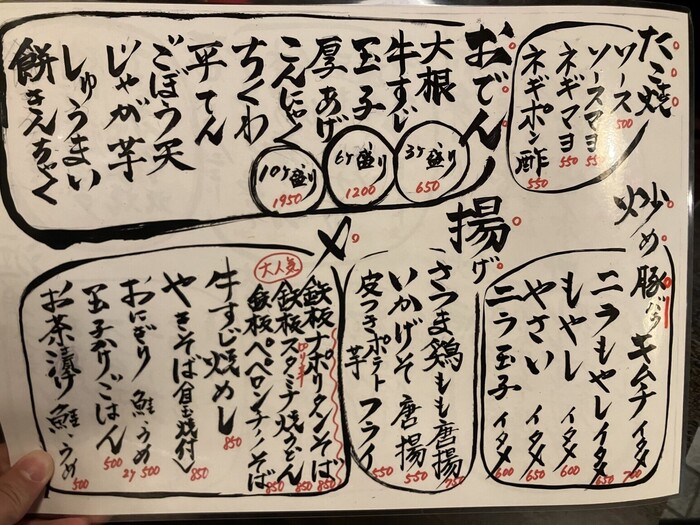 たこ焼
ソース 500
ソースマヨ 550
ネギマヨ 550
ネギポン酢 550
おでん
大根
牛すじ
玉子
厚あげ
こんにゃく
ちくわ
平てん
ごぼう天
じゃが芋
しゅうまい
餅きんちゃく
3ヶ盛り 650
6ヶ盛り 1200
10ヶ盛り 1950
炒め
豚バラキムチイタメ 700
ニラもやしイタメ 650
もやしイタメ 600
やさいイタメ 650
ニラ玉子イタメ 600
揚げ
さつま鶏もも唐揚 750
いかげそ唐揚 550
皮つきポテト芋フライ 550
〆
大人気
鉄板ナポリタンそば 850
鉄板スタミナ焼うどん 850
鉄板ペペロンチーノそば 850
牛すじ焼めし 850
やきそば(目玉焼付) 850
おにぎり 鮭、うめ 2ヶ500
玉子かけごはん 500
お茶漬け 鮭、うめ 500